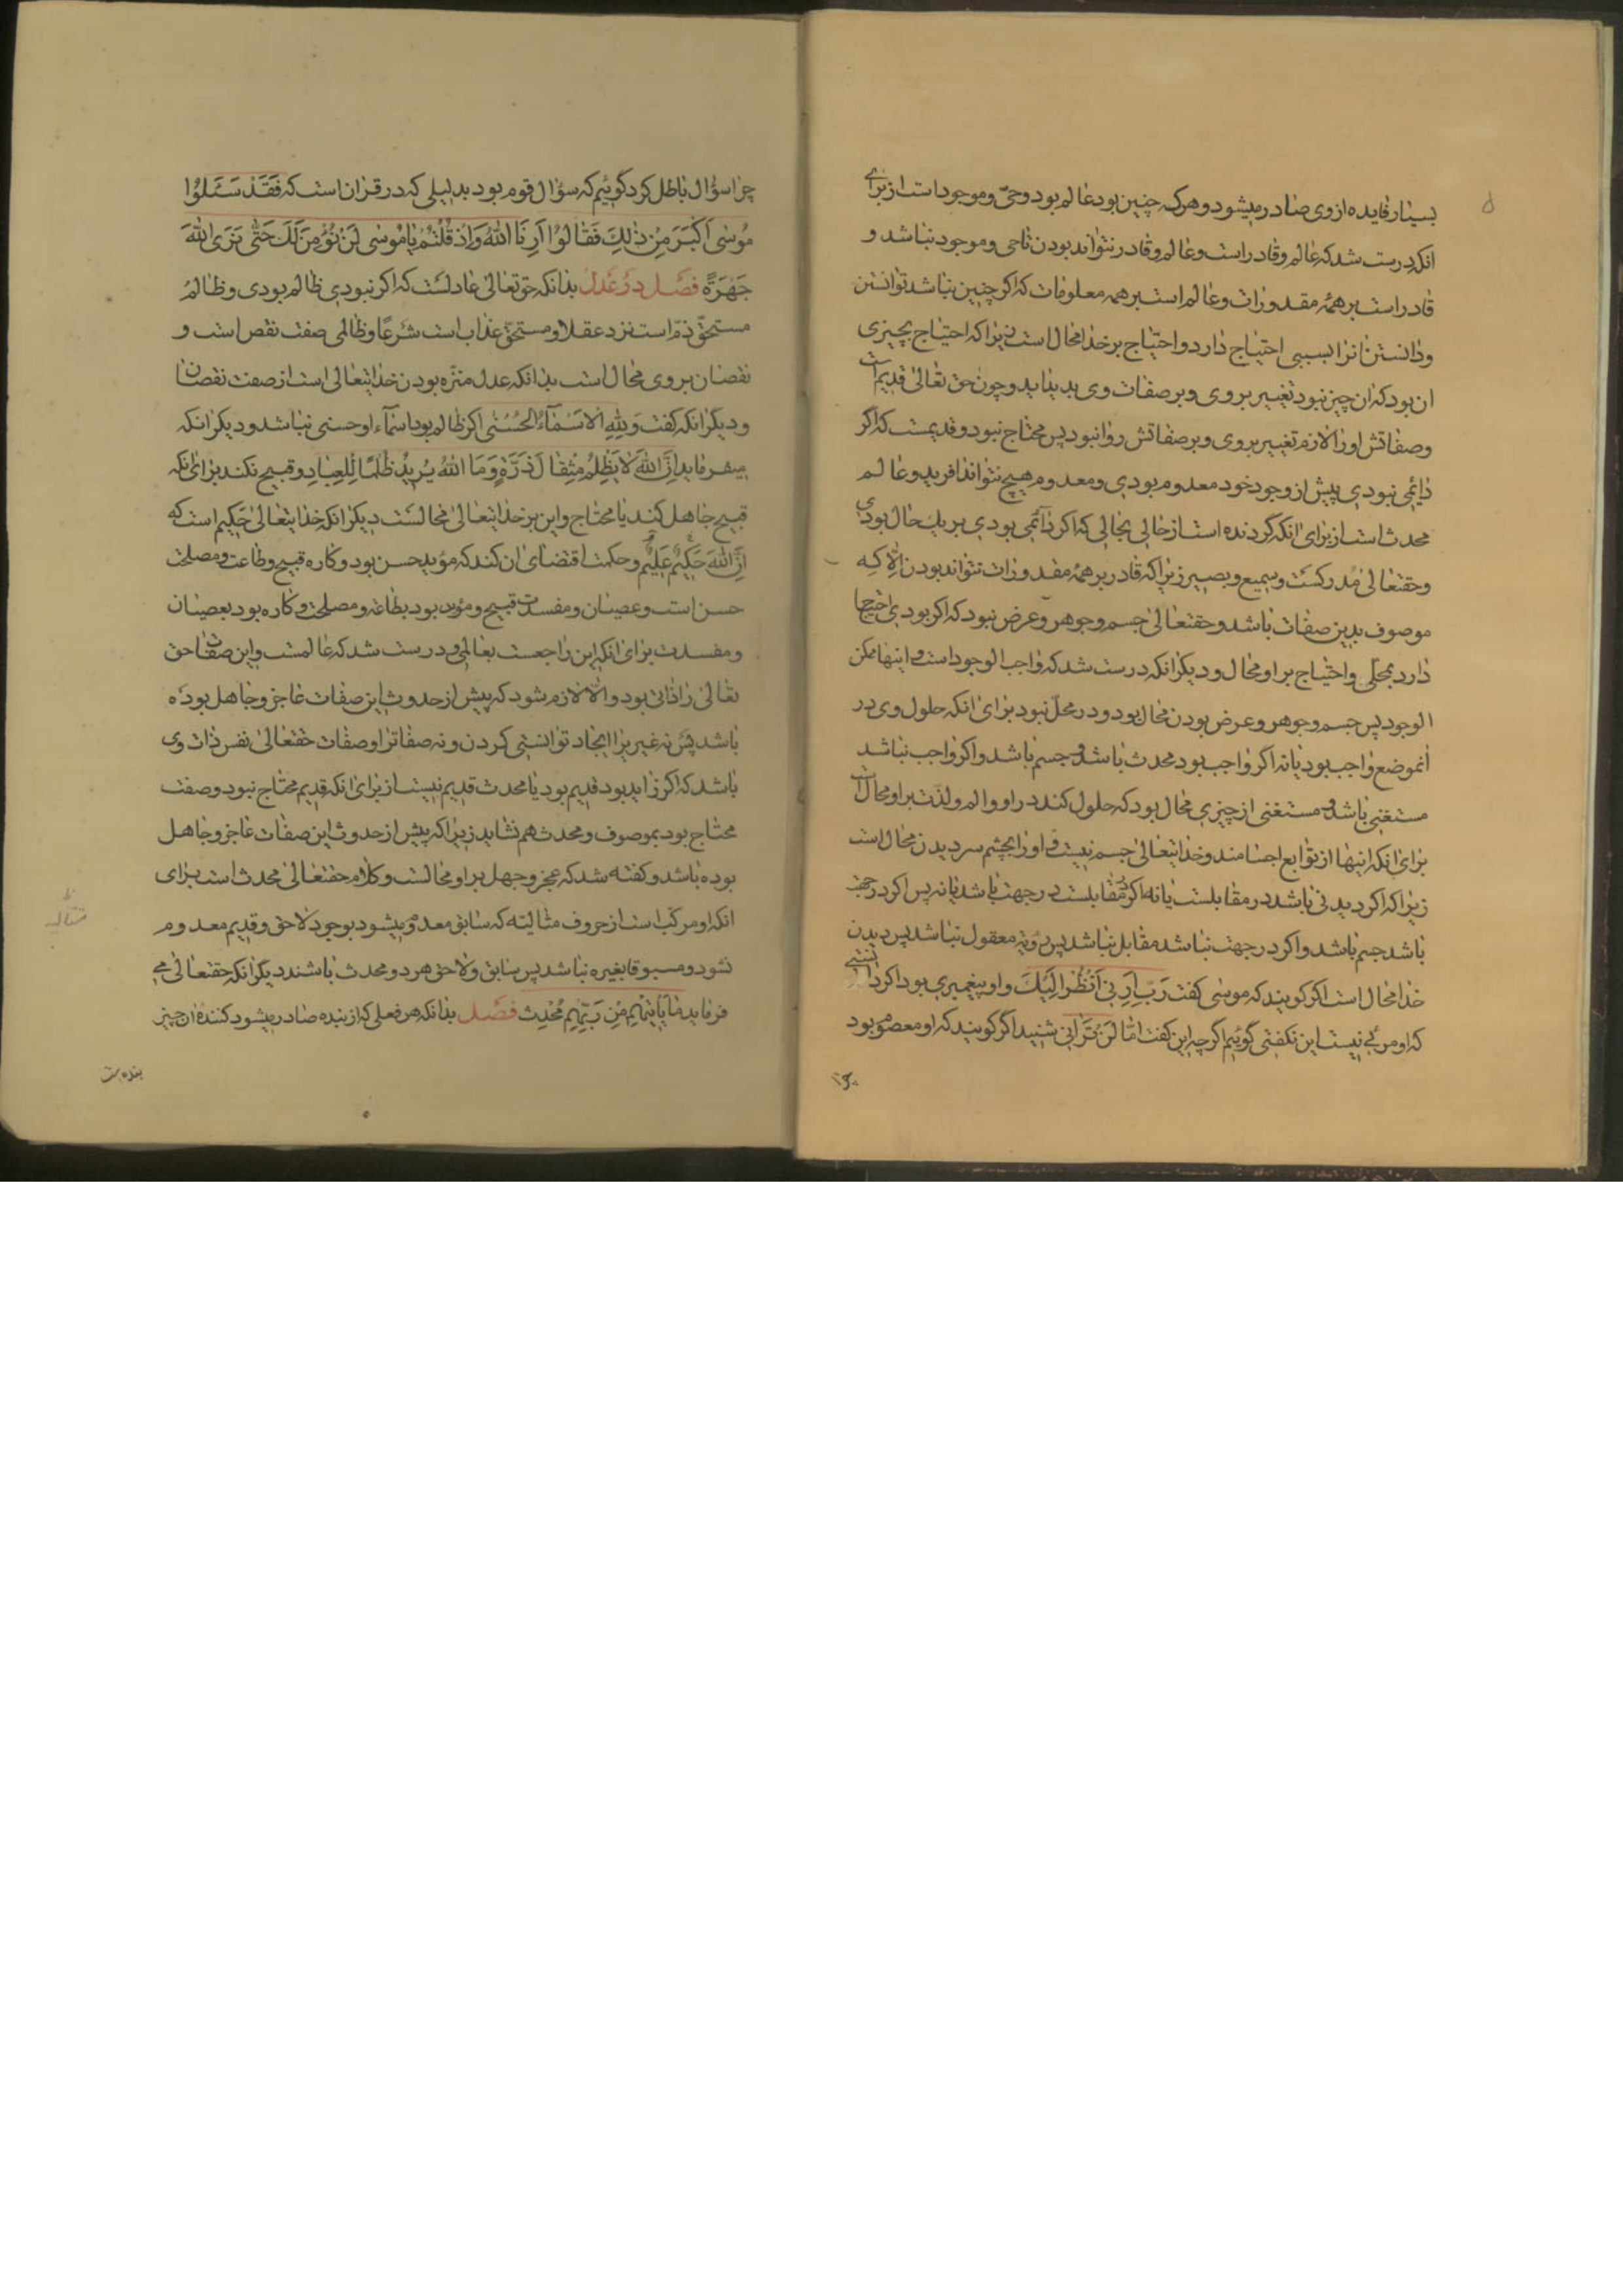 بسیار فایده از وی صادر میشود و هر که چنین بود عالم بود و حیّ و موجود است از برای
انکه درست شد که عالم و قادر است و عالم و قادر نتواند بودن تا حی و موجود نباشد و
قادر است بر همهٔ مقدورات و عالم است بر همه معلومات که اکر چنین نباشد توانستن
و دانستن انرا بسببی احتیاج دارد و احتیاج بر خدا محال است زیرا که احتیاج بچیزی
ان بود که ان چیز نبود تغییر بر وی و بر صفات وی پدید اید و چون حق تعالی قدیم است
و صفاتش او را لازم تغییر بر وی و بر صفاتش روا نبود پس محتاج نبود و قدیمست که اکر
دایمی نبودی پیش از وجود خود معدوم بودی و معدوم هیچ نتواند افرید و عالم
محدث است از برای انکه گردنده است از حالی بحالی که اکر دائمی بودی بر یک حال بودی
و حقتعالی مدرکست و سمیع و بصیر زیرا که قادر بر همهٔ مقدورات نتواند بودن الا که
موصوف بدین صفات باشد و حقتعالی جسم و جوهر و عرض نبود که اکر بودی احتیاج
دارد بمحلّی و احتیاج بر او محال و دیکر انکه درست شد که واجب الوجود است و اینها ممکن
الوجود پس جسم و جوهر و عرض بودن محال بود و در محلّ نبود برای انکه حلول وی در
انموضع واجب بود یا نه اکر واجب بود محدث باشد و جسم باشد و اکر واجب نباشد
مستغنی باشد و مستغنی از چیزی محال بود که حلول کند در او و الم و لذت بر او محال است
برای انکه اینها از توابع اجسامند و خدایتعالی جسم نیست و او را بچشم سر دیدن محال است
زیرا که اکر دیدنی باشد در مقابلست یا نه اکر در مقابلست در جهت باشد یا نه پس اکر در جهت
باشد جسم باشد و اکر در جهت نباشد مقابل نباشد پس رؤیه معقول نباشد پس دیدن
خدا محال است اکر کویند که موسی کفت رَبِّ اَرِنی اَنْظُرْ اِلَیْکَ و او پیغمبری بود اکر دانستی
که او مرئی نیست این نکفتی گوئیم اکر چه این کفت اما لَنْ تَرَانی شنید اگر کویند که او معصوم بود
چرا
چرا سؤال باطل کرد گوئیم که سؤال قوم بود بدلیلی که در قران است که فَقَدْ سَئَلُوا
مُوسٰی اَکْبَرَ مِنْ ذٰلِکَ فَقَالُوا اَرِنَا اللّٰهَ وَاِذْ قُلْتُمْ یَا مُوسٰی لَنْ نُؤْمِنَ لَکَ حَتّٰی نَرَی اللّٰهَ
جَهْرَةً فصل در عدل بدانکه حق تعالی عادلست که اکر نبودی ظالم بودی و ظالم
مستحقّ ذمّ است نزد عقلا و مستحقّ عذاب است شرعًا و ظالمی صفت نقص است و
نقصان بر وی محال است بدانکه عدل منزّه بودن خدایتعالی است از صفت نقصان
و دیکر انکه کفت وَلِلّٰهِ الْاَسْمَآءُ الْحُسْنٰی اکر ظالم بود اسمآء او حسنی نباشد و دیکر انکه
میفرماید اِنَّ اللّٰهَ لَا یَظْلِمُ مِثْقَالَ ذَرَّةٍ وَمَا اللّٰهُ یُرِیدُ ظُلْمًا لِلْعِبَادِ و قبیح نکند برای انکه
قبیح جاهل کند یا محتاج و این بر خدایتعالی محالست دیکر انکه خدایتعالی حکیم است که
اِنَّ اللّٰهَ حَکِیمٌ عَلِیمٌ و حکمت اقتضای ان کند که مرید حسن بود و کاره قبیح و طاعت و مصلحت
حسن است و عصیان و مفسدت قبیح و مرید بود بطاعة و مصلحت و کاره بود بعصیان
و مفسدت برای انکه این راجعست بعالمی و درست شد که عالمست و این صفات حق
تعالی را ذاتی بود و الا لازم شود که پیش از حدوث این صفات عاجز و جاهل بوده
باشد پس نه غیر برا ایجاد توانستی کردن و نه صفاترا و صفات حقتعالی نفس ذات وی
باشد که اکر زاید بود قدیم بود یا محدث قدیم نیست از برای انکه قدیم محتاج نبود و صفت
محتاج بود بموصوف و محدث هم نشاید زیرا که پیش از حدوث این صفات عاجز و جاهل
بوده باشد و کفته شد که عجز و جهل بر او محالست و کلام حقتعالی محدث است برای
انکه او مرکّب است از حروف متالیته که سابق معدوم میشود بوجود لاحق و قدیم معدوم
نشود و مسبوقا بغیره نباشد پس سابق و لاحق هر دو محدث باشند دیگر انکه حقتعالی می
فرماید مَا یَأْتِیهِمْ مِنْ رَبِّهِمْ مُحْدَثٍ فصل بدانکه هر فعلی که از بنده صادر میشود کنندهٔ ان چیز
بنده است